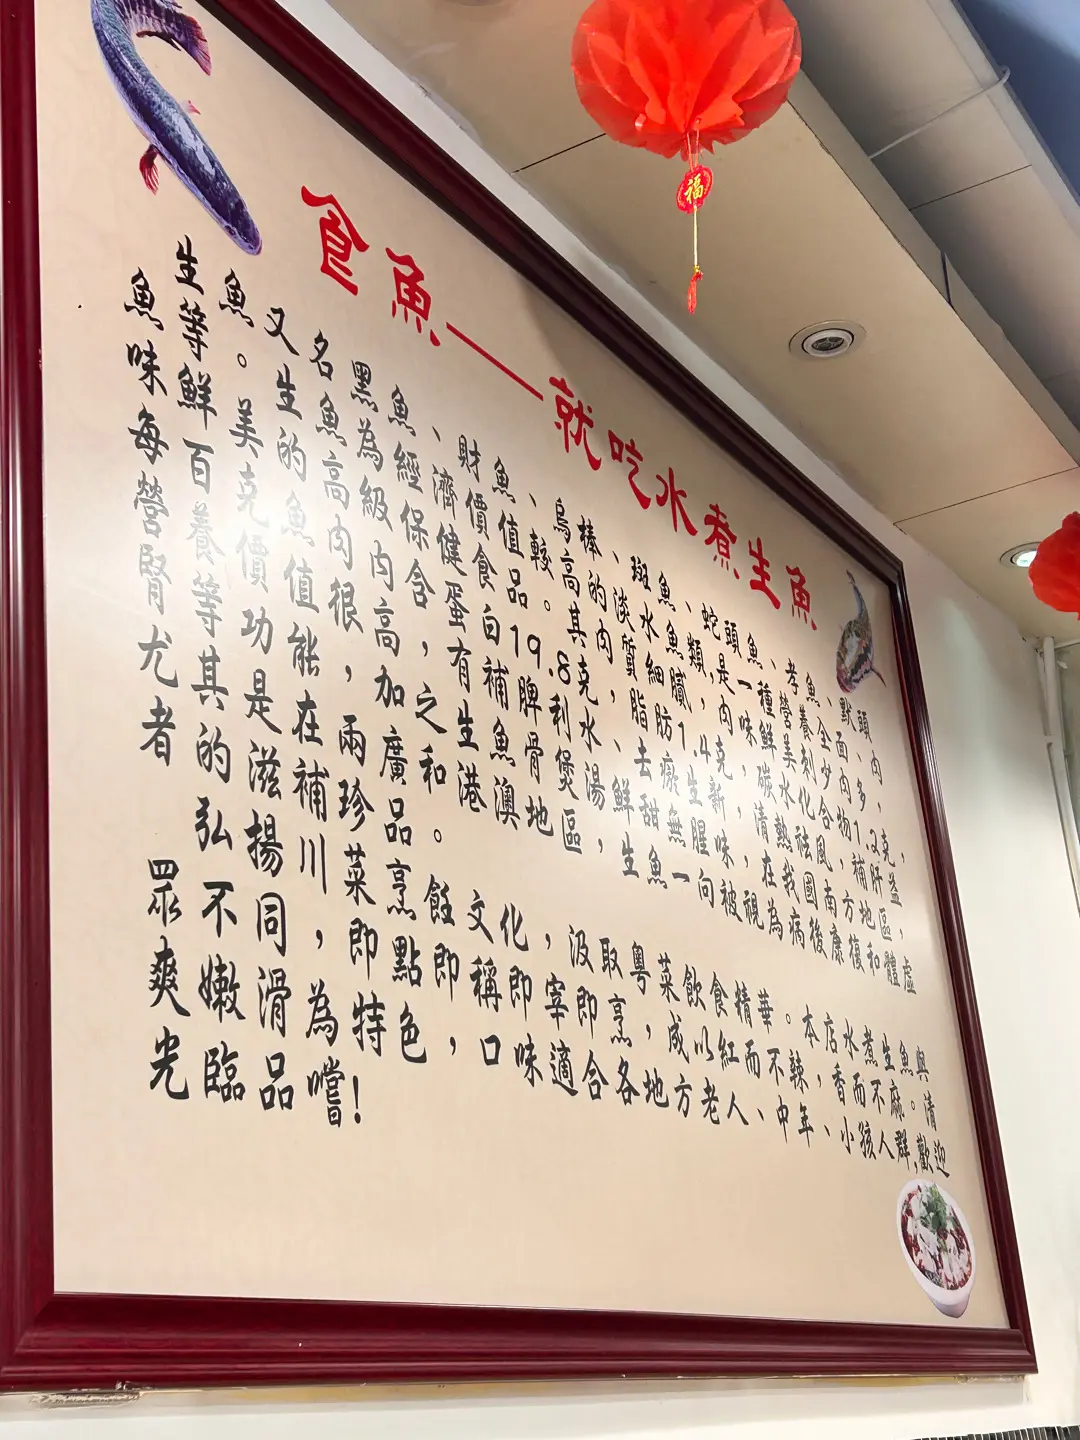 食魚——就吃水煮生魚
生魚又名黑魚、財魚、烏棒、斑魚、蛇頭魚、孝魚、默頭
魚等。生魚為經濟價值較高的淡水魚類,是一種營養全面、
味鮮美的高級保健食品。其肉質細膩,肉味鮮美刺少肉多,
每百克魚肉內含蛋白19.8克,脂肪1.4克,碳水化合物1.2克,
營養價值很高,有補脾利水、去瘀生新、清熱祛風、補肝益
腎等功能,加之生魚骨煲湯鮮甜無腥味,在我國南方地區,
尤其是在兩廣和港澳地區,生魚一向被視為病後康復和體虛
者的滋補珍品。
弘揚川菜烹飪文化,汲取粵菜飲食精華。本店水煮生魚與
眾不同,即點即稱即宰即烹,成以紅而不辣,香而不麻。清
爽嫩滑為特色,口味適合各地方老人、中年、小孩人群,歡迎
光臨品嚐!
福